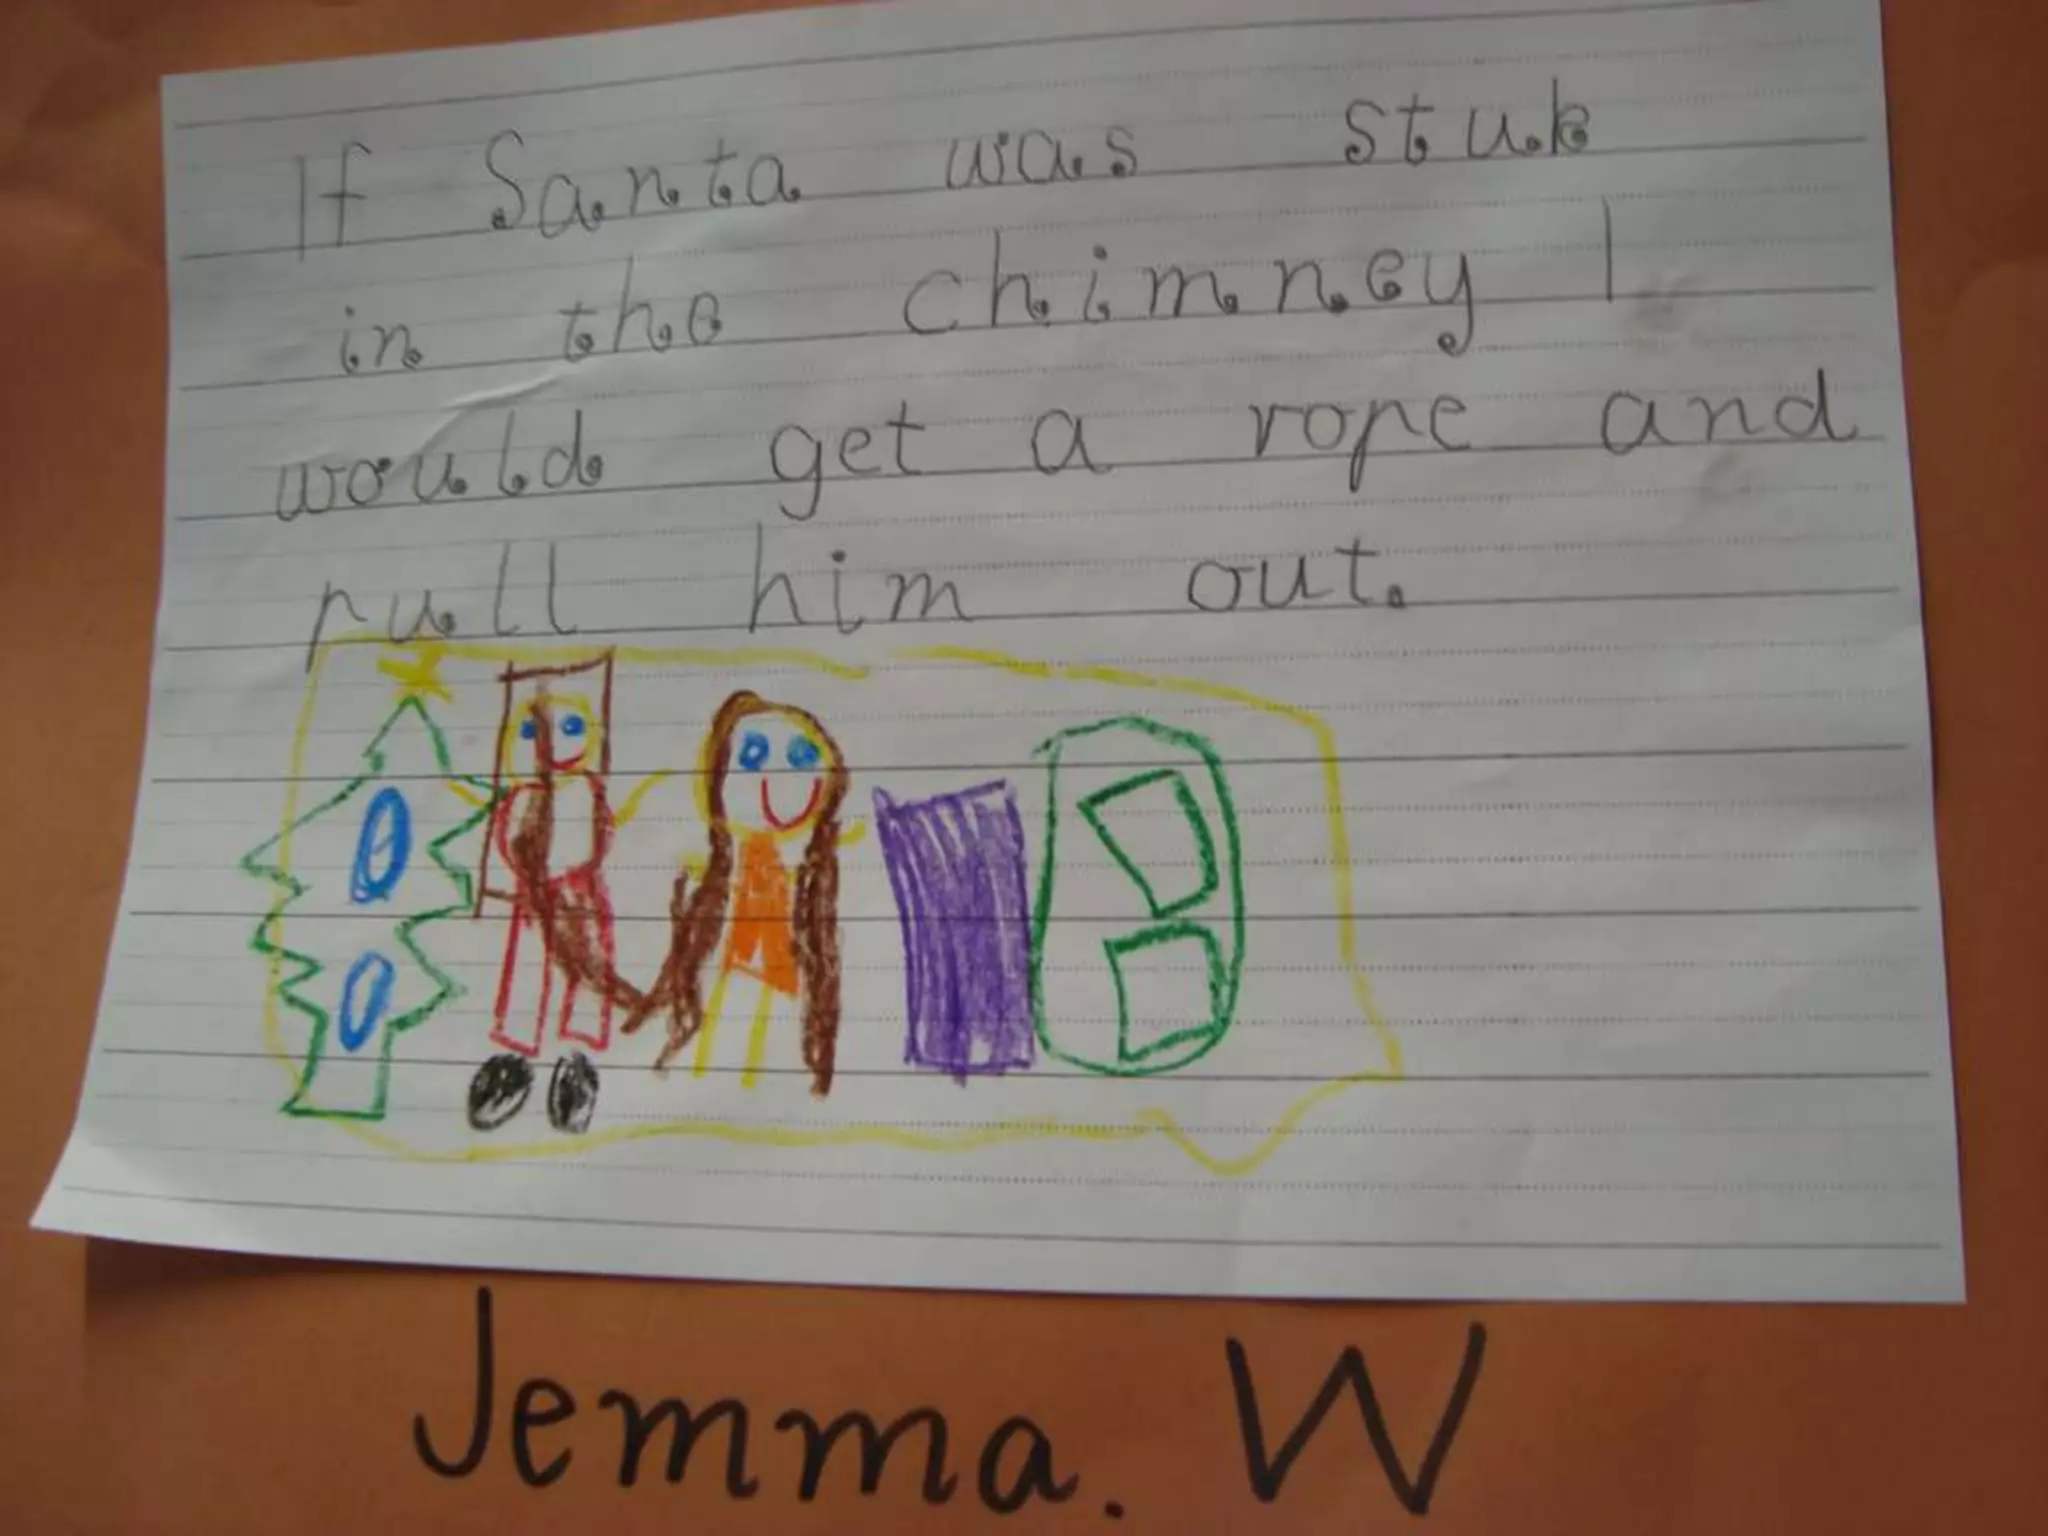 If Santa was stuk
in the chimney I
would get a rope and
pull him out.
Jemma. W